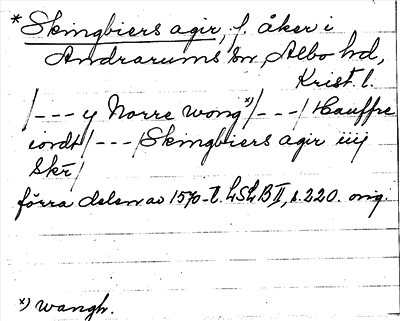 * Skingbiers agir, f. åker i
Andrarums sn, Albo hd,
Krist. l.
/--- y Norre wong x)/---/ Hauffre
iordt/---/ Skingbiers agir iiij
Skr/
förra delen av 1570-t. LSLB II, s. 220. orig.
x) wangh.